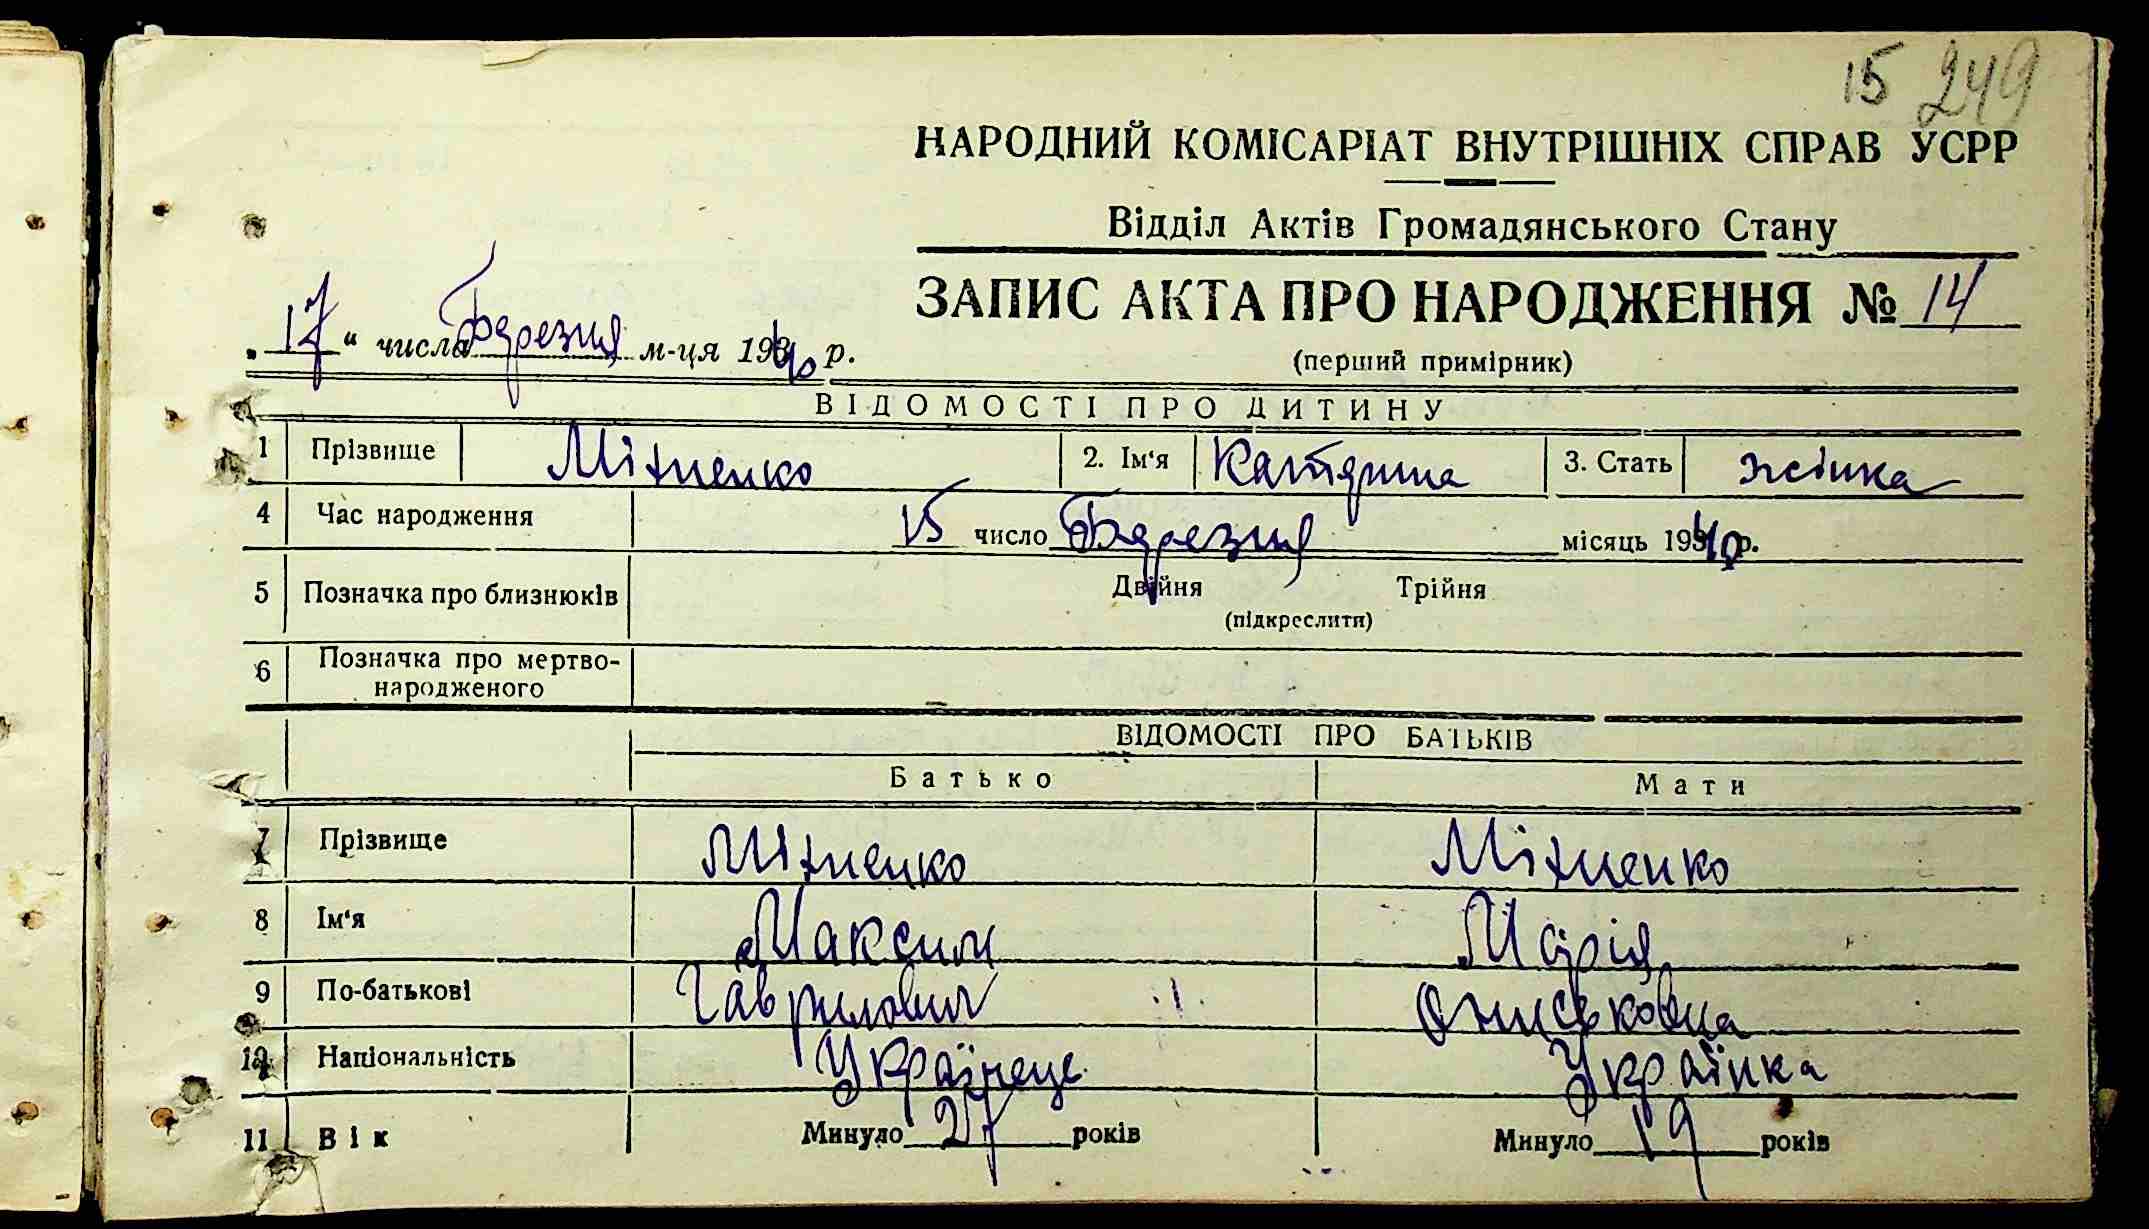 15 249
НАРОДНИЙ КОМІСАРІАТ ВНУТРІШНІХ СПРАВ УСРР
Відділ Актів Громадянського Стану
ЗАПИС АКТА ПРО НАРОДЖЕННЯ № 14
(перший примірник)
„17“ числа Березня м-ця 1940 р.
ВІДОМОСТІ ПРО ДИТИНУ
1 Прізвище Міхненко 2. Ім‘я Катерина 3. Стать жінка
4 Час народження 15 число Березня місяць 1940 р.
5 Позначка про близнюків Двійня Трійня
(підкреслити)
6 Позначка про мертво-
народженого
ВІДОМОСТІ ПРО БАТЬКІВ
Батько Мати
7 Прізвище Міхненко Міхненко
8 Ім‘я Максим Марія
9 По-батькові Гаврилович
10 Національність Українець Українка
11 Вік Минуло 27 років Минуло 19 років